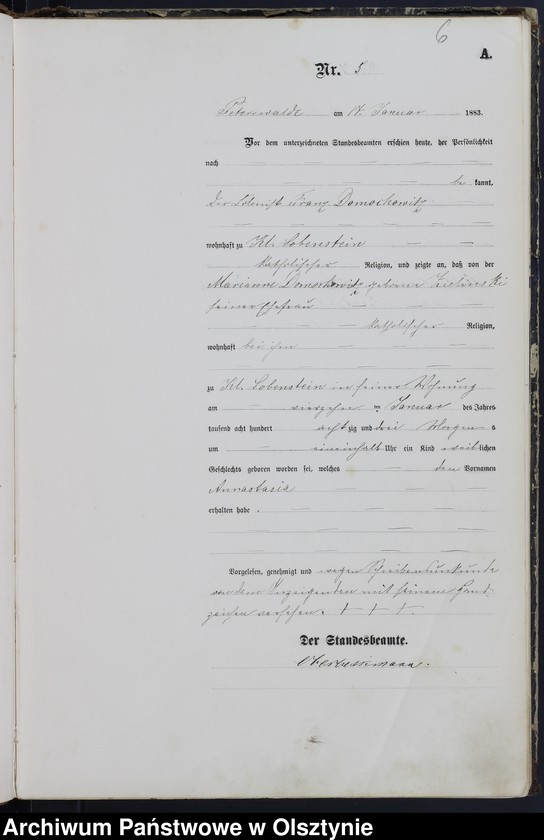 6
A.
Nr. 5
Peterswalde am 17. Januar 1883.
Vor dem unterzeichneten Standesbeamten erschien heute, der Persönlichkeit
nach
be kannt,
der Kolonist Franz Domochowitz
wohnhaft zu Kl. Lobenstein
katholischer Religion, und zeigte an, daß von der
Marianne Domochowitz geborene
seiner Ehefrau
katholischer Religion,
wohnhaft bei ihm
zu Kl. Lobenstein in seiner Wohnung
am vierzehn ten Januar des Jahres
tausend acht hundert acht zig und drei Morgen s
um eineinhalb Uhr ein Kind weib lichen
Geschlechts geboren worden sei, welches den Vornamen
Annastasia
erhalten habe.
Vorgelesen, genehmigt und wegen Schreibensunkunde
von dem Anzeigenden mit seinem Hand-
zeichen versehen. + + +
Der Standesbeamte.
Archiwum Państwowe w Olsztynie